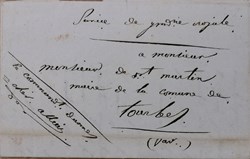 Service de gendrie royale
a monsieur
monsieur de st martin
maire de la comune de
tourbes
(var)
le commandt